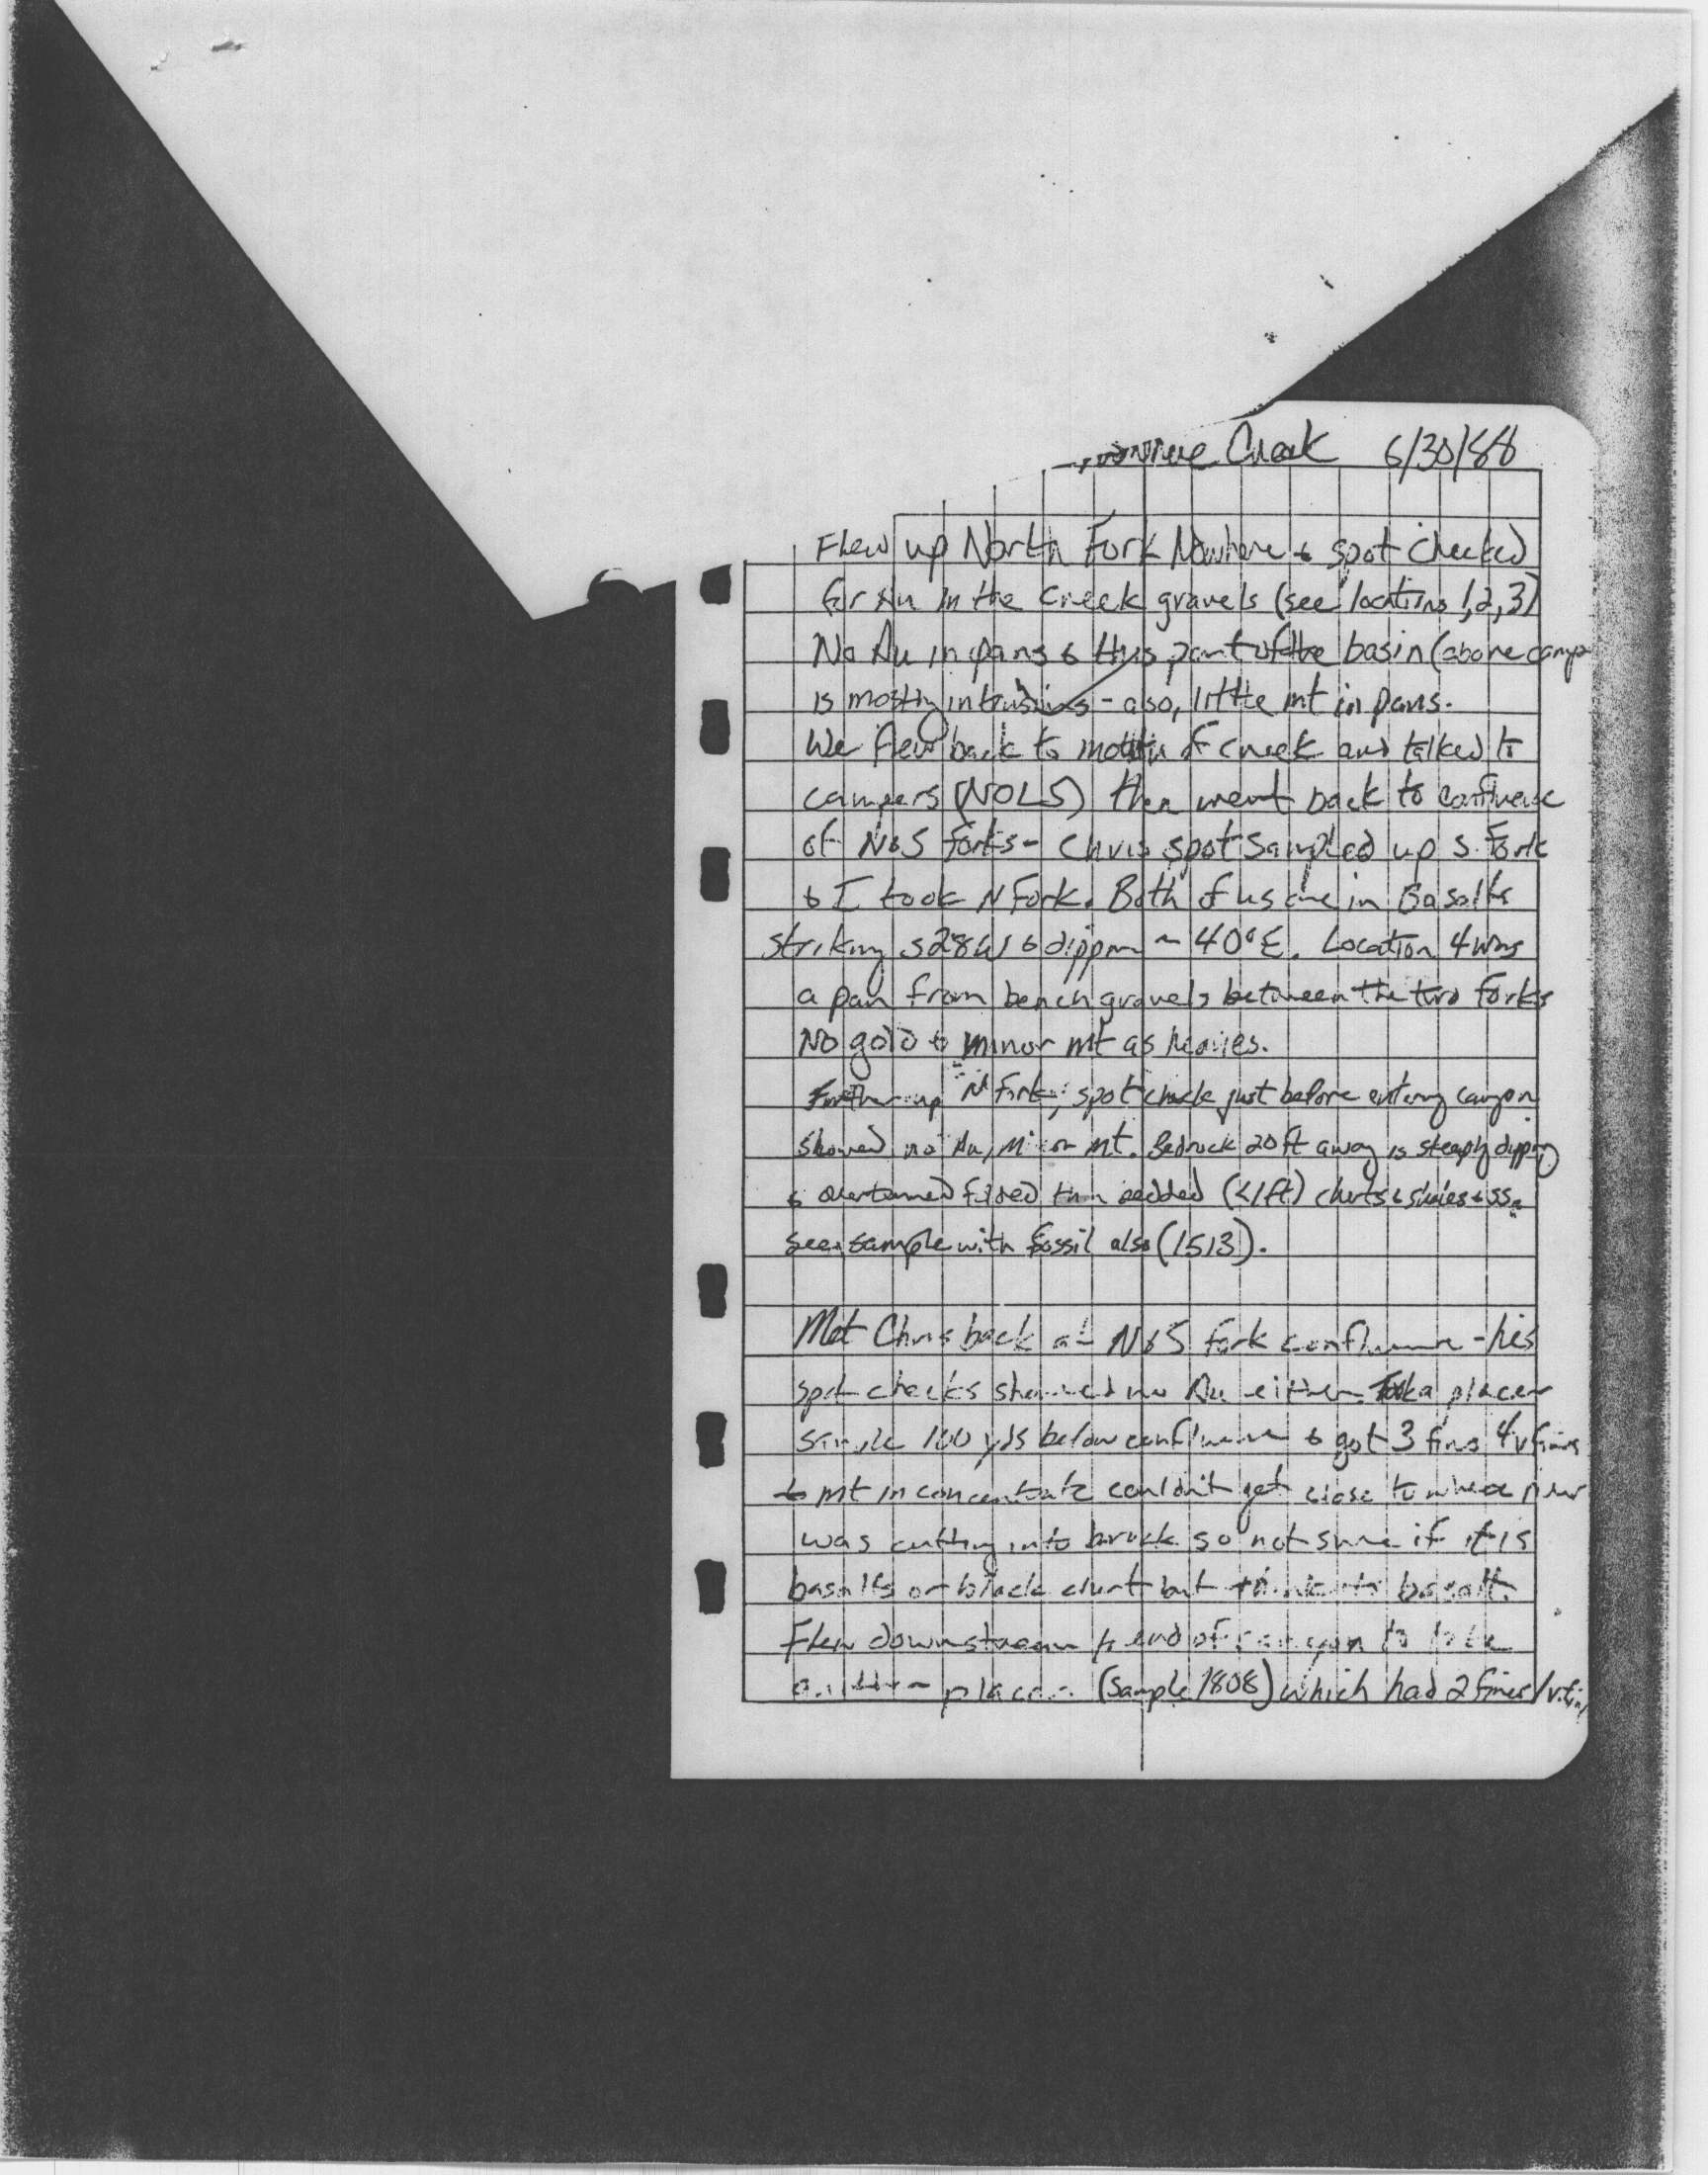 Creek 6/30/88
Flew up North Fork Nowhere & spot checked
for Au in the creek gravels (see locations 1,2,3)
No Au in pans & this part of the basin (above camp
is mostly intrusives - also, little mt in pans.
We flew back to mouth of creek and talked to
campers (NOLS) then went back to confluence
of N&S forks - Chris spot sampled up S. Fork
& I took N Fork. Both of us are in Basalts
striking S28W & dippin ~ 40°E. Location 4 was
a pan from bench gravels between the two forks
No gold & minor mt as heavies.
Further up N Fork; spot check just before entering canyon
showed no Au, minor mt. Bedrock 20 ft away is steeply dipping
& overturned folded thin bedded (<1ft) cherts & shales & ss.
see sample with fossil also (1513).
Met Chris back at N&S fork confluence - his
spot checks showed no Au either. Took a placer
sample 100 yds below confluence & got 3 fines 4 v fines
& mt in concentrate couldn't get close to where
was cutting into brock so not sure if it is
basalts or black chert but think its basalt.
Flew downstream to end of canyon to take
another placer (sample 1808) which had 2 fines / v.fin